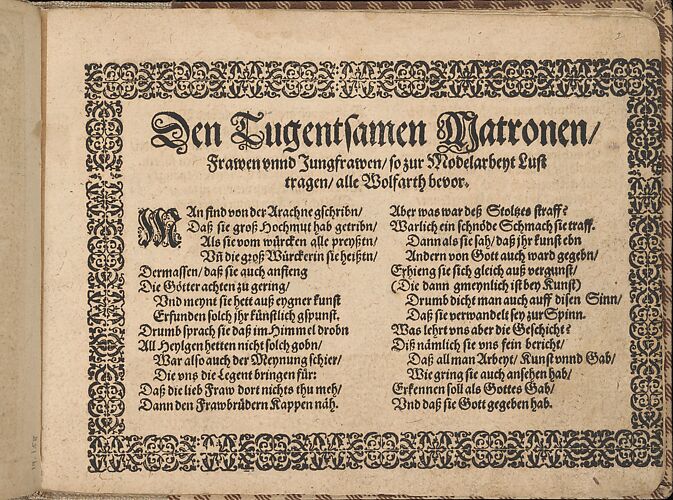 Den Tugentsamen Matronen/
Frawen vnnd Jungfrawen/ so zur Modelarbeyt Lust
tragen/ alle Wolfarth bevor.
MAn find von der Arachne gschribn/
Daß sie groß Hochmut hab getribn/
Als sie vom würcken alle preyßtn/
Vñ die groß Würckerin sie heißtn/
Dermassen/ daß sie auch anfieng
Die Götter achten zu gering/
Vnd meynt sie hett auß eygner kunst
Erfunden solch jhr künstlich gspunst.
Drumb sprach sie daß im Himmel drobn
All Heylgen hetten nicht solch gobn/
War also auch der Meynung schier/
Die vns die Legent bringen für:
Daß die lieb Fraw dort nichts thu meh/
Dann den Frawbrüdern Kappen näh.
Aber was war deß Stoltzes straff?
Warlich ein schnöde Schmach sie traff.
Dann als sie sah/ daß jhr kunst ebn
Andern von Gott auch ward gegebn/
Erhieng sie sich gleich auß vergunst/
(Die dann gmeynlich ist bey Kunst)
Drumb dicht man auch auff disen Sinn/
Daß sie verwandelt sey zur Spinn.
Was lehrt vns aber die Geschicht?
Diß nämlich sie vns fein bericht/
Daß all man Arbeyt/ Kunst vnnd Gab/
Wie gring sie auch ansehen hab/
Erkennen soll als Gottes Gab/
Vnd daß sie Gott gegeben hab.